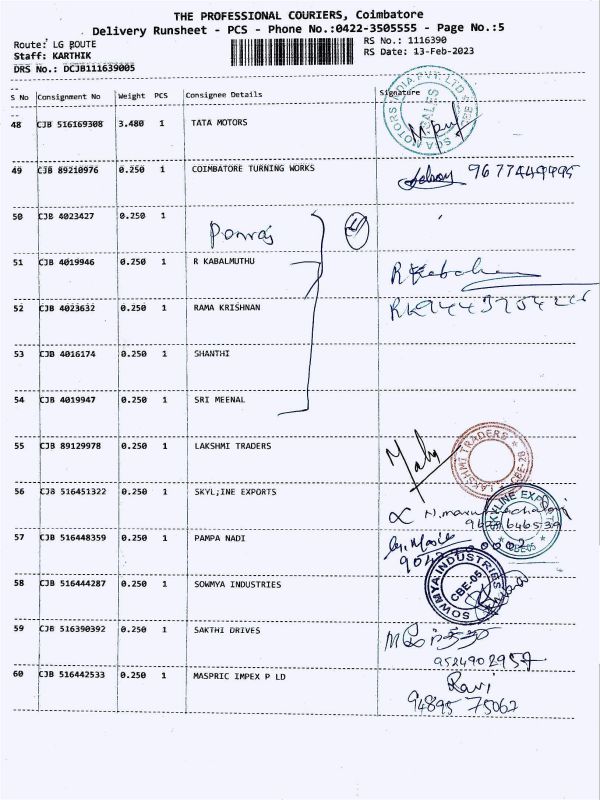 THE PROFESSIONAL COURIERS, Coimbatore
Delivery Runsheet - PCS - Phone No.:0422-3505555 - Page No.:5
Route: LG ROUTE
RS No.: 1116390
Staff: KARTHIK
RS Date: 13-Feb-2023
DRS No.: DCJB111639005
S No Consignment No Weight PCS Consignee Details Signature
48 CJB 516169308 3.480 1 TATA MOTORS
49 CJB 89210976 0.250 1 COIMBATORE TURNING WORKS 9677449495
50 CJB 4023427 0.250 1
Ponraj
51 CJB 4019946 0.250 1 R KABALMUTHU
52 CJB 4023632 0.250 1 RAMA KRISHNAN
53 CJB 4016174 0.250 1 SHANTHI
54 CJB 4019947 0.250 1 SRI MEENAL
55 CJB 89129978 0.250 1 LAKSHMI TRADERS
LAKSHMI TRADERS CBE-2
56 CJB 516451322 0.250 1 SKYL;INE EXPORTS
SKYLINE EXPORTS CBE-05
57 CJB 516448359 0.250 1 PAMPA NADI
58 CJB 516444287 0.250 1 SOWMYA INDUSTRIES
SOWMYA INDUSTRIES CBE-05
59 CJB 516390392 0.250 1 SAKTHI DRIVES
9524902957
60 CJB 516442533 0.250 1 MASPRIC IMPEX P LD
Ravi
94895 75062